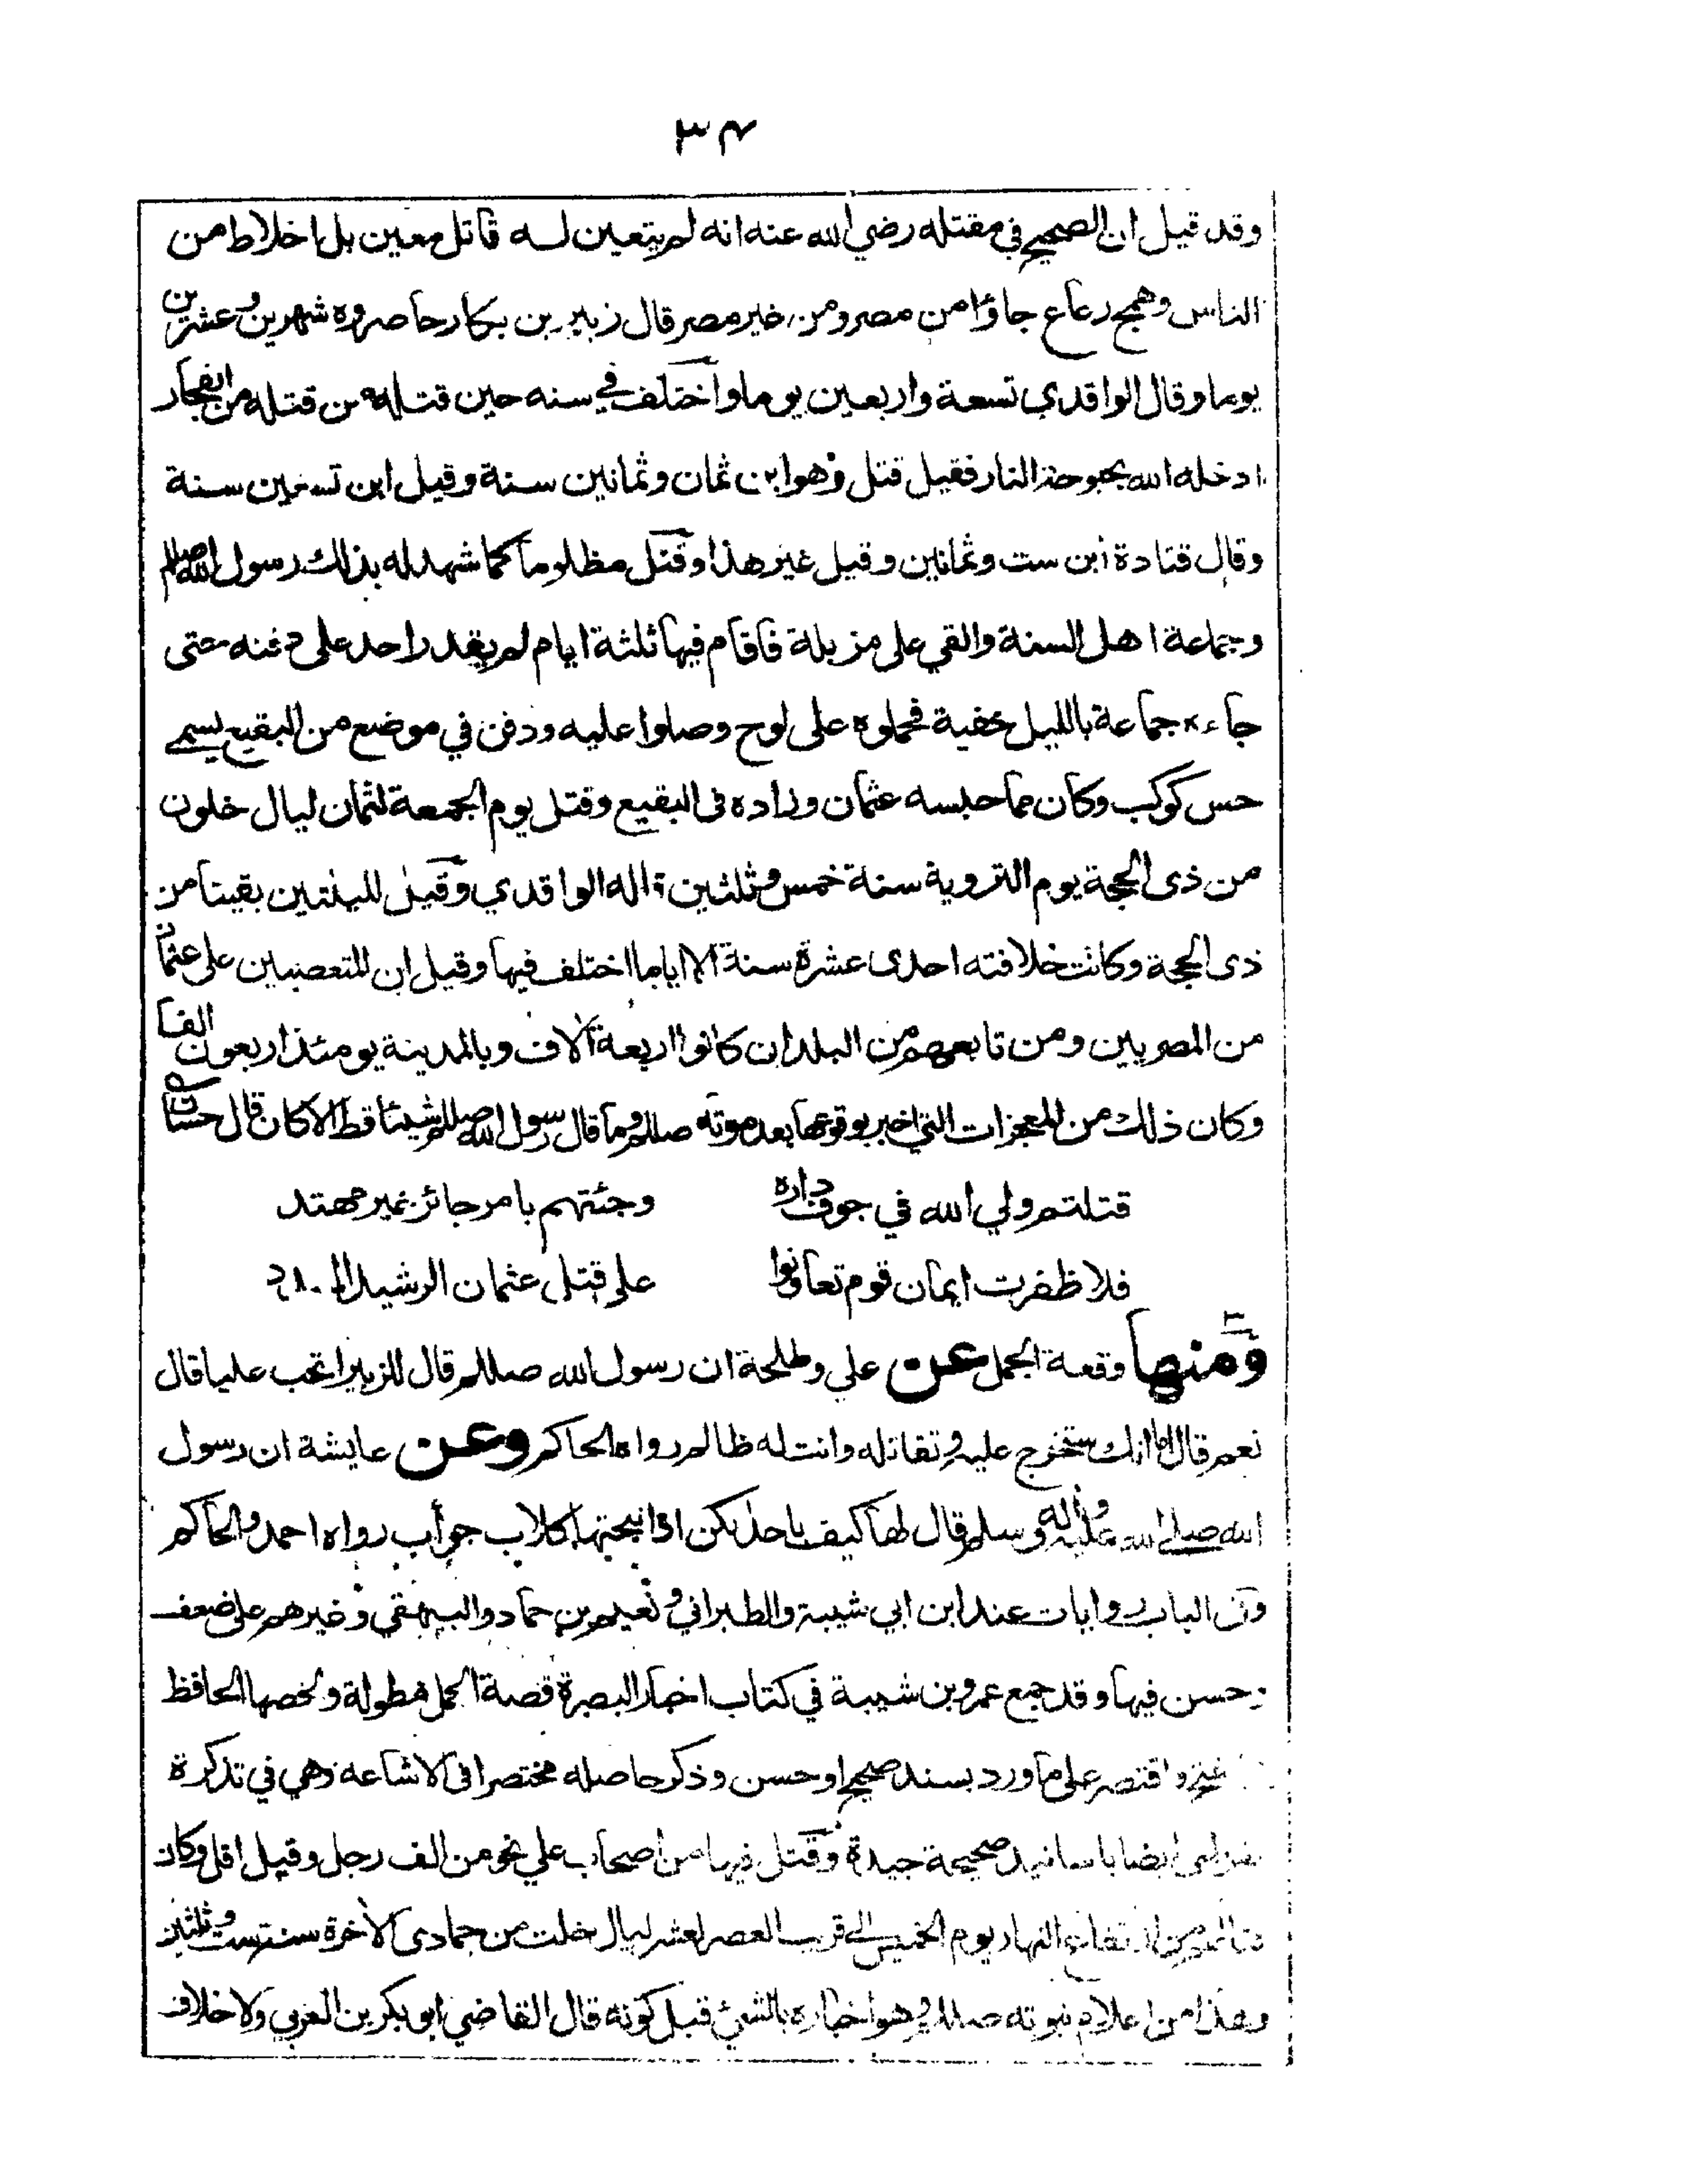 ٣٤
وقد قيل ان الصحيح في مقتله رضي الله عنه انه لم يتعين له قاتل معين بل اخلاط من
الناس وهمج رعاع جاؤا من مصر ومن غير مصر قال زبير بن بكار حاصروه شهرين وعشرين
يوما وقال الواقدي تسعة واربعين يوما واختلف في سنه حين قتله من قتله من الفجار
ادخله الله بحبوحة النار فقيل قتل وهو ابن ثمان وثمانين سنة وقيل ابن تسعين سنة
وقال قتادة ابن ست وثمانين وقيل غير هذا وقتل مظلوما كما شهد له بذلك رسول الله صللم
وجماعة اهل السنة والقي على مزبلة فاقام فيها ثلثة ايام لم يقدر احد على دفنه حتى
جاء جماعة بالليل خفية فحملوه على لوح وصلوا عليه ودفن في موضع من البقيع يسمى
حس كوكب وكان مما حبسه عثمان وزاده في البقيع وقتل يوم الجمعة لثمان ليال خلون
من ذى الحجة يوم التروية سنة خمس وثلثين قاله الواقدي وقيل لليلتين بقيتا من
ذى الحجة وكانت خلافته احدى عشرة سنة الا اياما اختلف فيها وقيل ان المتعصبين على عثمان
من المصريين ومن تابعهم من البلدان كانوا اربعة آلاف وبالمدينة يومئذ اربعون الفا
وكان ذلك من المعجزات التي اخبر بوقوعها بعد موته صللم وما قال رسول الله صللم شيئا قط الا كان قال حسان
قتلتم ولي الله في جوف داره وجئتهم بامر جائر غير مهتد
فلا ظفرت ايمان قوم تعاونوا على قتل عثمان الرشيد
ومنها وقعة الجمل عن علي وطلحة ان رسول الله صللم قال للزبير اتحب عليا قال
نعم قال اما انك ستخرج عليه وتقاتله وانت له ظالم رواه الحاكم وعن عايشة ان رسول
الله صلى الله عليه وآله وسلم قال لها كيف باحدكن اذا نبحتها كلاب حوأب رواه احمد والحاكم
وفي الباب روايات عند ابن ابي شيبة والطبراني ونعيم بن حماد والبيهقي وغيرهم على ضعف
وحسن فيها وقد جمع عمرو بن شيبة في كتاب اخبار البصرة قصة الجمل مطولة ولخصها الحافظ
واقتصر على ما ورد بسند صحيح او حسن وذكر حاصله مختصرا في الاشاعه وهي في تذكرة
ايضا باسانيد صحيحة جيدة وقتل فيها من اصحاب علي نحو من الف رجل وقيل اقل وكان
قتالهم من ارتفاع النهار يوم الخميس الى قريب العصر لعشر ليال خلت من جمادى الآخرة سنة ست وثلثين
وهذا من اعلام نبوته صللم وهو اخباره بالشئ قبل كونه قال القاضي ابو بكر بن العربي ولا خلاف